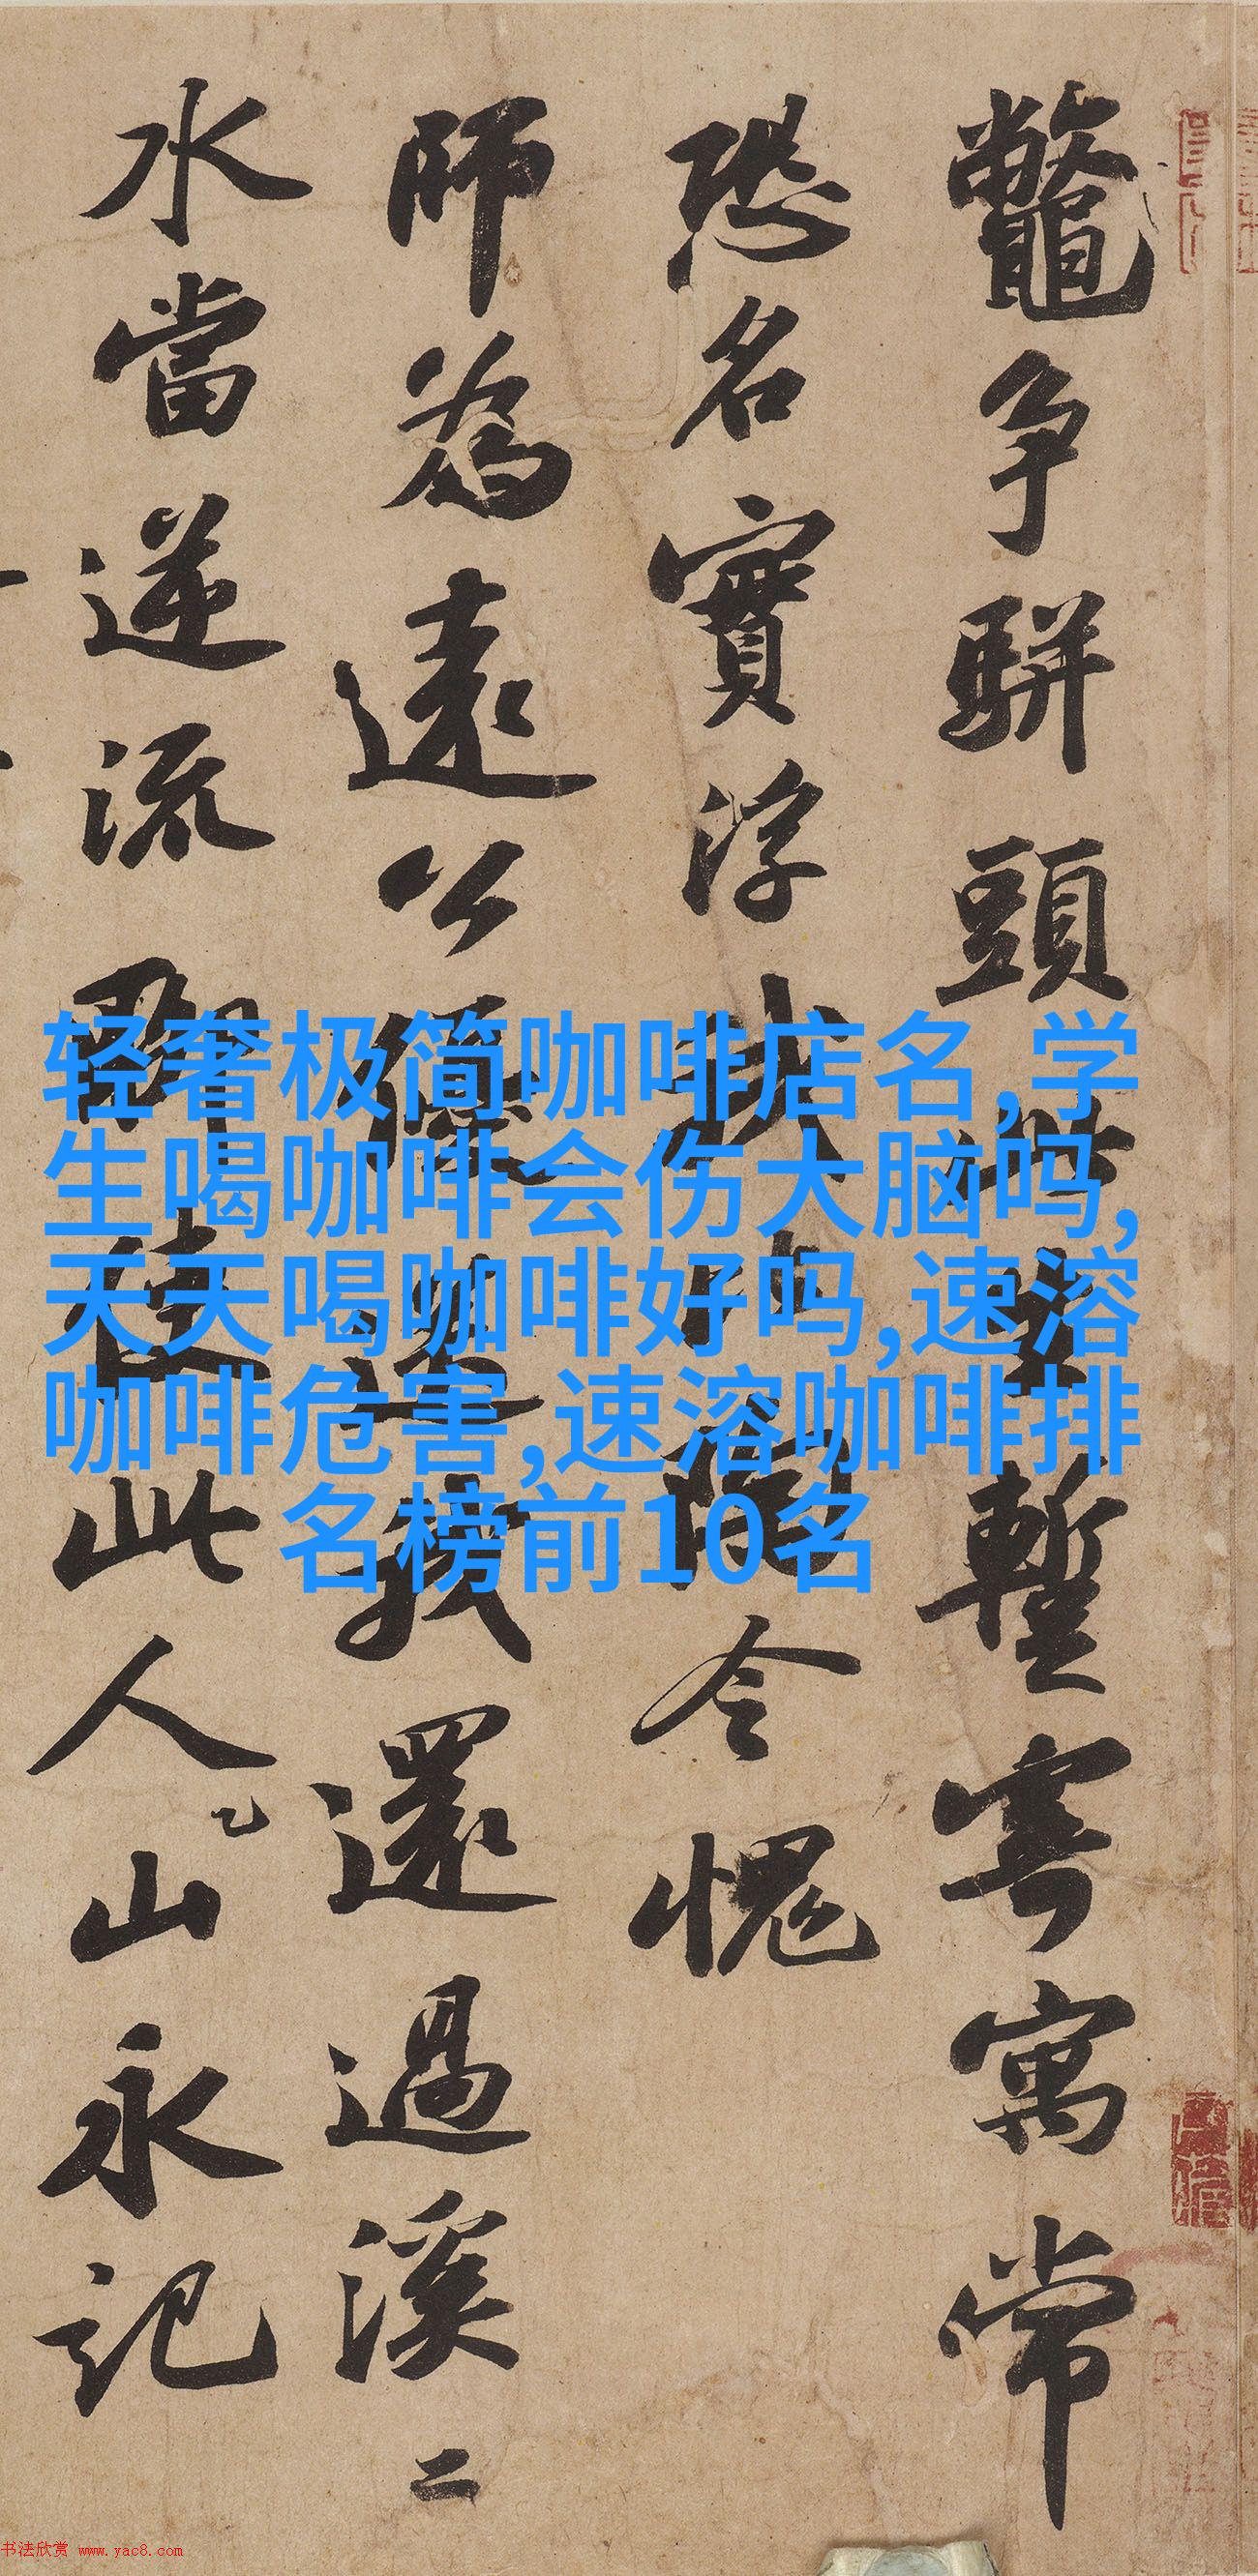 鼈争駢頭此生暫寄寓常
恐名實浮我比陶令愧
師為遠公優送我還過溪二
水當逆流聊使此人山永記
轻奢极简咖啡店名,学
生喝咖啡会伤大脑吗,
天天喝咖啡好吗,速溶
咖啡危害,速溶咖啡排
名榜前10名
书法欣赏 www.yac8.com